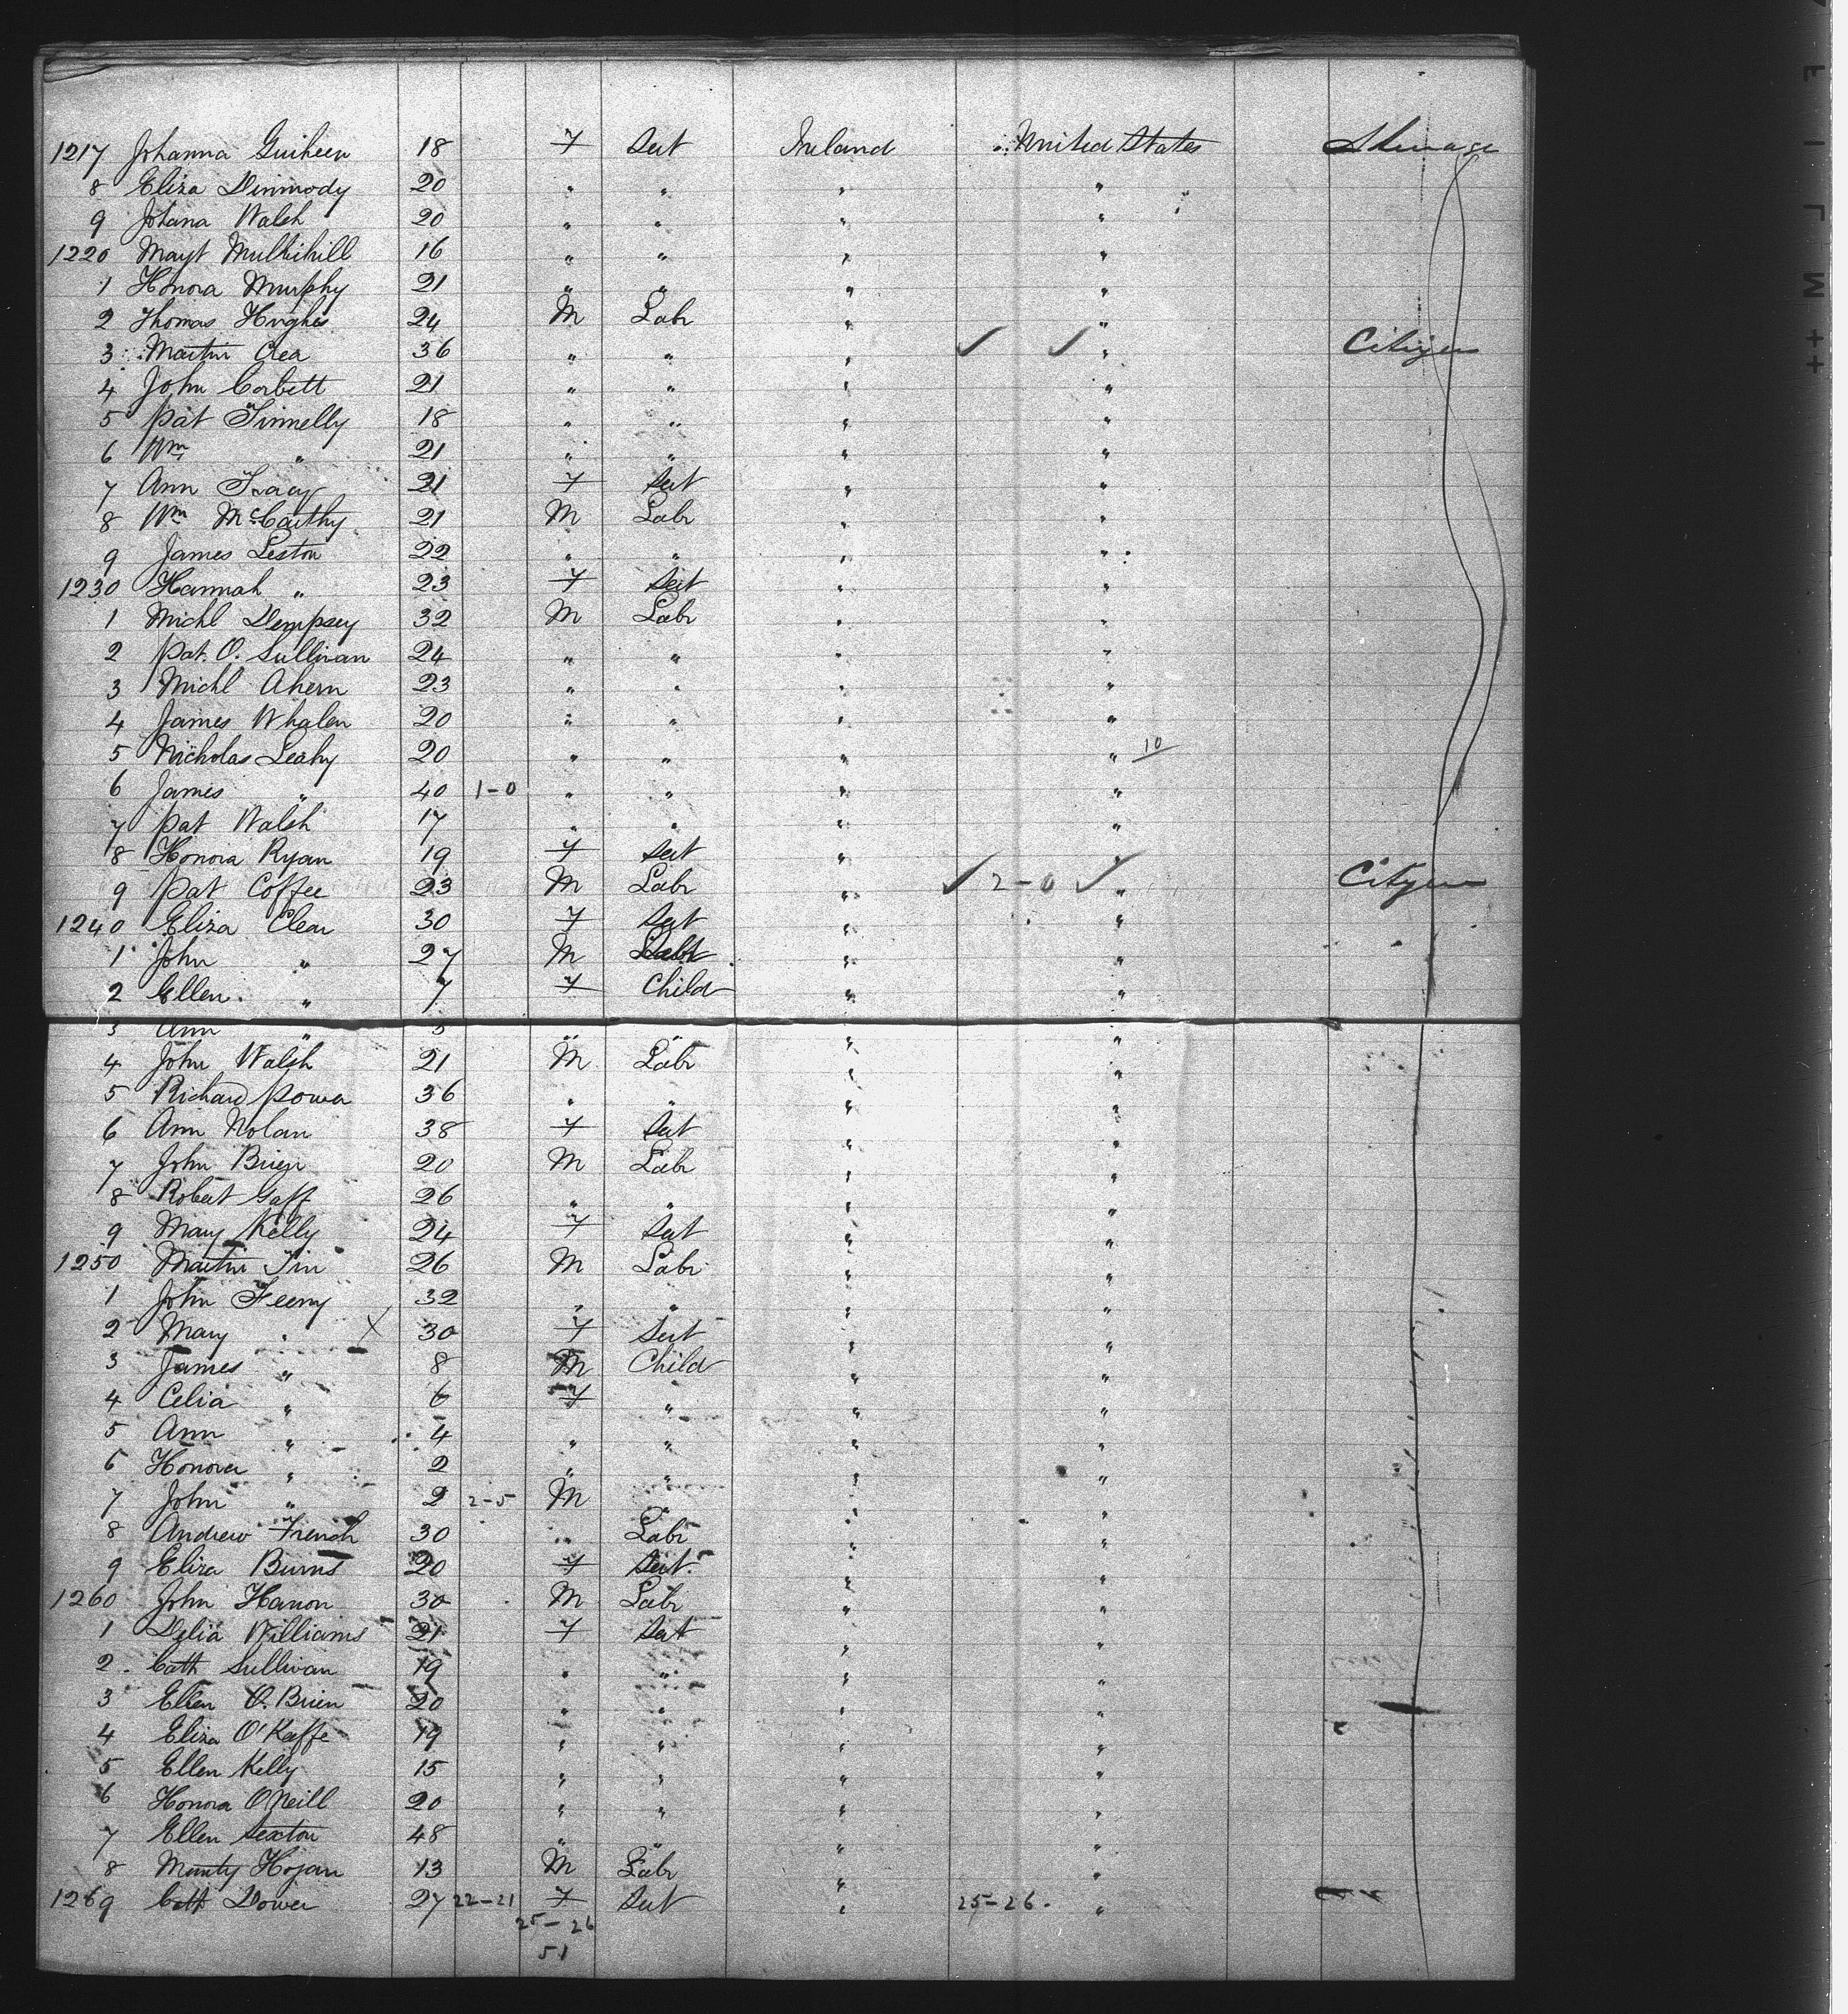 1217 Johanna Guiheen 18 F Sert Ireland United States Steerage
8 Eliza Dinmody 20 " " " "
9 Johana Walsh 20 " " " "
1220 Magt Mullihill 16 " " " "
1 Honora Murphy 21 " " " "
2 Thomas Hughes 24 M Labr " "
3 Martin Crea 36 " " " ✓ ✓ " Citizen
4 John Corbett 21 " " " "
5 Pat Finnelly 18 " " " "
6 Wm " 21 " " " "
7 Ann Tracy 21 F Sert " "
8 Wm McCarthy 21 M Labr " "
9 James Leston 22 " " " "
1230 Hannah " 23 F Sert " "
1 Michl Dempsey 32 M Labr " "
2 Pat. O. Sullivan 24 " " " "
3 Michl Ahern 23 " " " "
4 James Whalen 20 " " " "
5 Nicholas Leahy 20 " " " " 10
6 James " 40 1-0 " " " "
7 Pat Walsh 17 " " " "
8 Honora Ryan 19 F Sert " "
9 Pat Coffee 23 M Labr " ✓ 2-0 ✓ " Citizen
1240 Eliza Clear 30 F Sert " "
1 John " 27 M Labr " "
2 Ellen " 7 F Child " "
3 Ann " 5 " " " "
4 John Walsh 21 M Labr " "
5 Richard Power 36 " " " "
6 Ann Nolan 38 F Sert " "
7 John Brien 20 M Labr " "
8 Robert Gaff 26 " " " "
9 Mary Kelly 24 F Sert " "
1250 Martin Fin 26 M Labr " "
1 John Feeny 32 " " " "
2 Mary " X 30 F Sert " "
3 James " 8 M Child " "
4 Celia " 6 F " " "
5 Ann " 4 " " " "
6 Honora " 2 " " " "
7 John " 2 2-5 M " "
8 Andrew French 30 " Labr " "
9 Eliza Burns 20 F Sert " "
1260 John Hanon 30 M Labr " "
1 Delia Williams 21 F Sert " "
2 Cath Sullivan 19 " " " "
3 Ellen O. Brien 20 " " " "
4 Eliza O'Kaffe 19 " " " "
5 Ellen Kelly 15 " " " "
6 Honora O'Neill 20 " " " "
7 Ellen Sexton 48 " " " "
8 Hogan 13 M Labr " "
1269 Cath Power 27 22-21 F Sert " 25-26. "
25-26
51
FILM++